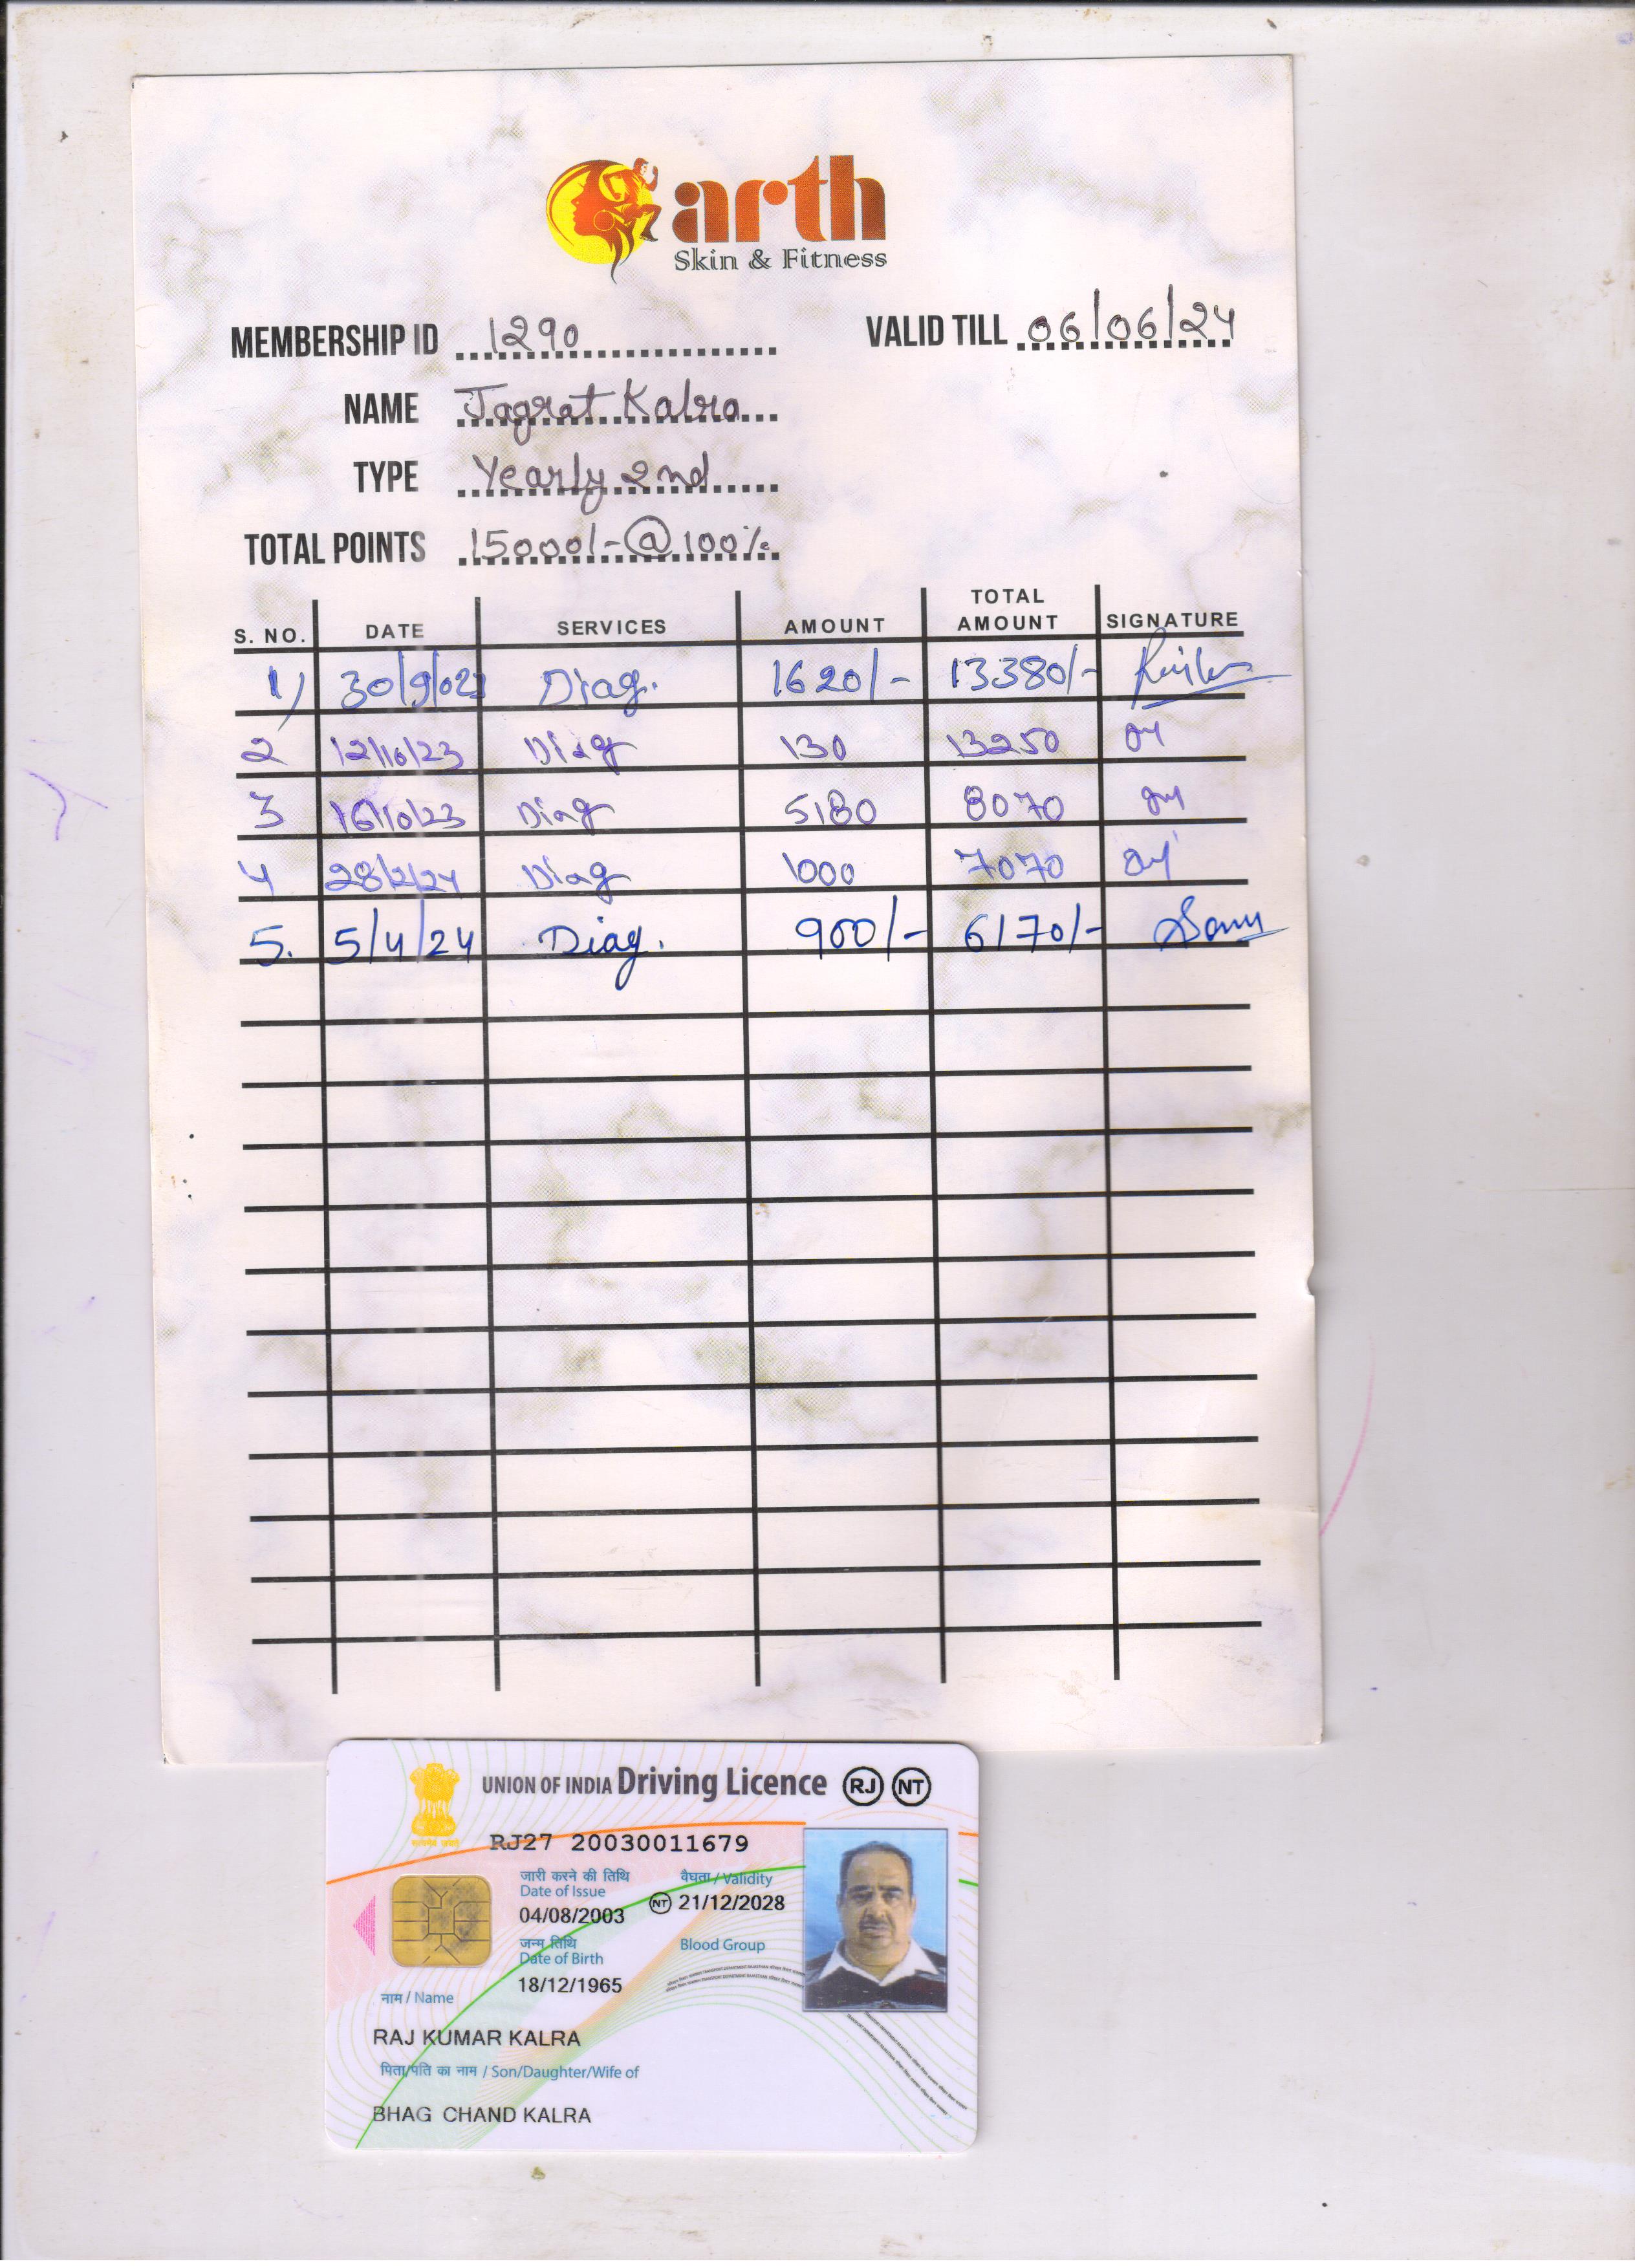 arth
Skin & Fitness
MEMBERSHIP ID 1290 VALID TILL 06/06/24
NAME Jagrat Kalra
TYPE Yearly 2nd
TOTAL POINTS 15000/-@100%
S. NO. DATE SERVICES AMOUNT TOTAL AMOUNT SIGNATURE
1) 30/9/023 Diag. 1620/- 13380/-
2 12/10/23 Diag 130 13250
3 16/10/23 Diag 5180 8070
4 28/2/24 Diag 1000 7070
5. 5/4/24 Diag. 900/- 6170/-
UNION OF INDIA Driving Licence RJ NT
RJ27 20030011679
जारी करने की तिथि वैधता / Validity
Date of Issue
04/08/2003 NT 21/12/2028
जन्म तिथि Blood Group
Date of Birth
18/12/1965
नाम / Name
RAJ KUMAR KALRA
पिता/पति का नाम / Son/Daughter/Wife of
BHAG CHAND KALRA